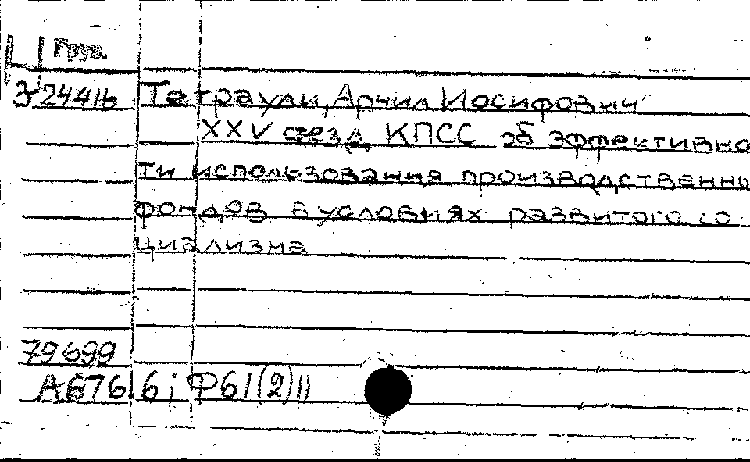 Груз.
324416 Тетраули, Арчил Иосифович
XXV съезд КПСС об эффективно
ти использования производственны
фондов в условиях развитого со
циализма
79699
А676.6; Ф61(2)11